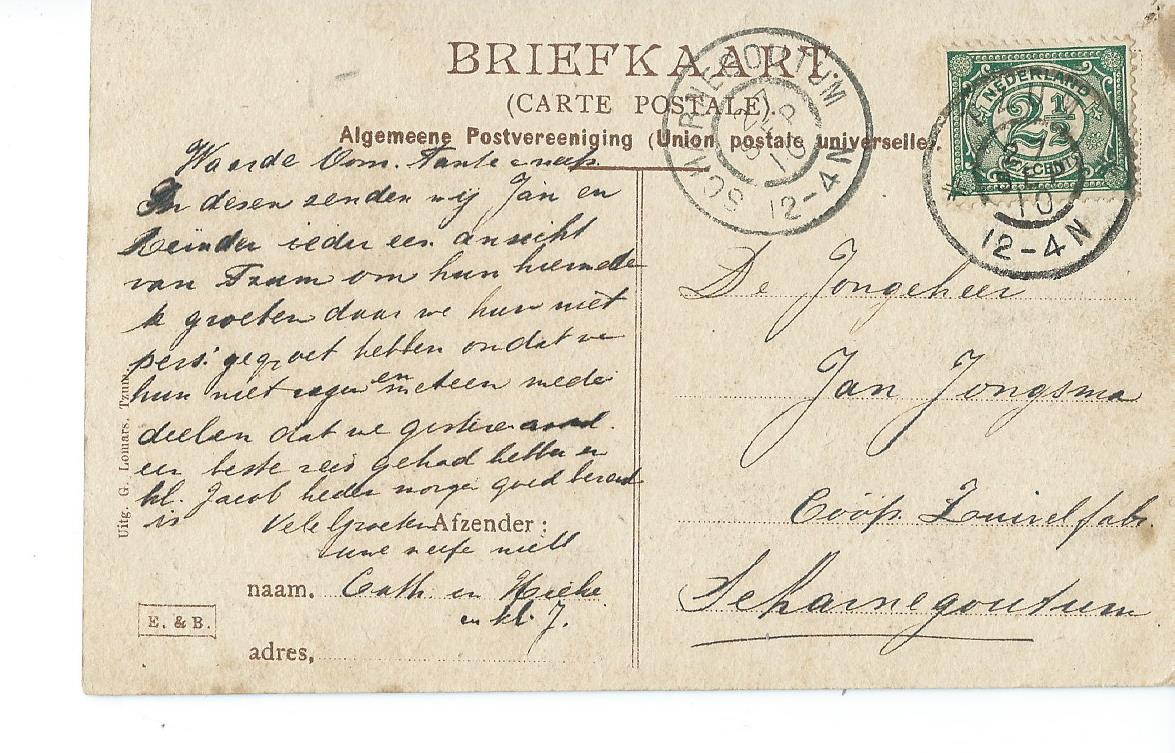 BRIEFKAART
(CARTE POSTALE).
Algemeene Postvereeniging (Union postale universelle).
SCHARNEGOUTUM
27 SEP 10
12-4N
NEDERLAND
2½
CENT
TZUM
27 SEP 10
12-4N
Waarde Oom. Tante & neefs
In desen zenden wij Jan en
Reinder ieder een ansicht
van Tzum om hun hiermede
te groeten daar we hun niet
pers. gegroet hebben omdat we
hun niet zagen en meteen mede
deelen dat we gisteren
een beste reis gehad hebben en
kl. Jacob heden morgen goed
is Vele Groeten
uwe neefe nicht
Afzender:
naam. Cath. en Hielke
en kl. J.
adres,
E. & B.
Uitg. G. Lomars, Tzum
De Jongeheer
Jan Jongsma
Coöp. Zuivelfabr.
Scharnegoutum